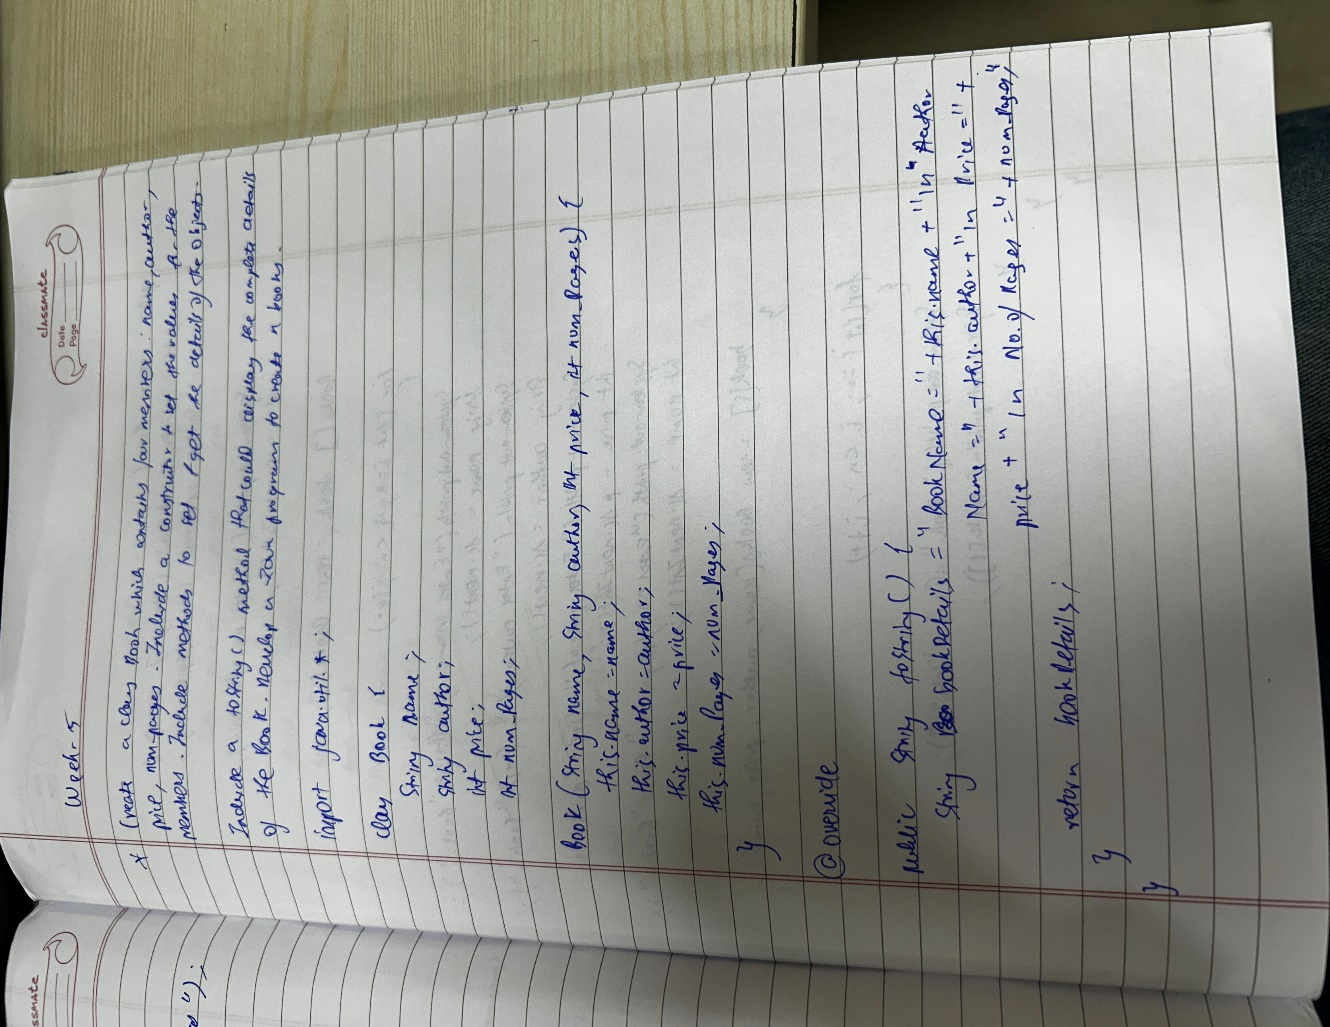 classmate
Date
Page
Week-5
* Create a class Book which contains four members: name, author,
price, num-pages. Include a constructor to set the values for the
members. Include methods to set & get the details of the objects.
Include a toString() method that could display the complete details
of the Book. Develop a Java program to create n books.
import java.util.*;
class Book {
String name;
String author;
int price;
int num_Pages;
Book (String name, String author, int price, int num_Pages) {
this.name = name;
this.author = author;
this.price = price;
this.num_Pages = num_Pages;
}
@override
public String toString() {
String bookDetails = "Book Name = " + this.name + "\n" Author
Name = " + this.author + "\n Price = " +
price + "\n No.of Pages = " + num_Pages";
return bookDetails;
}
}
");